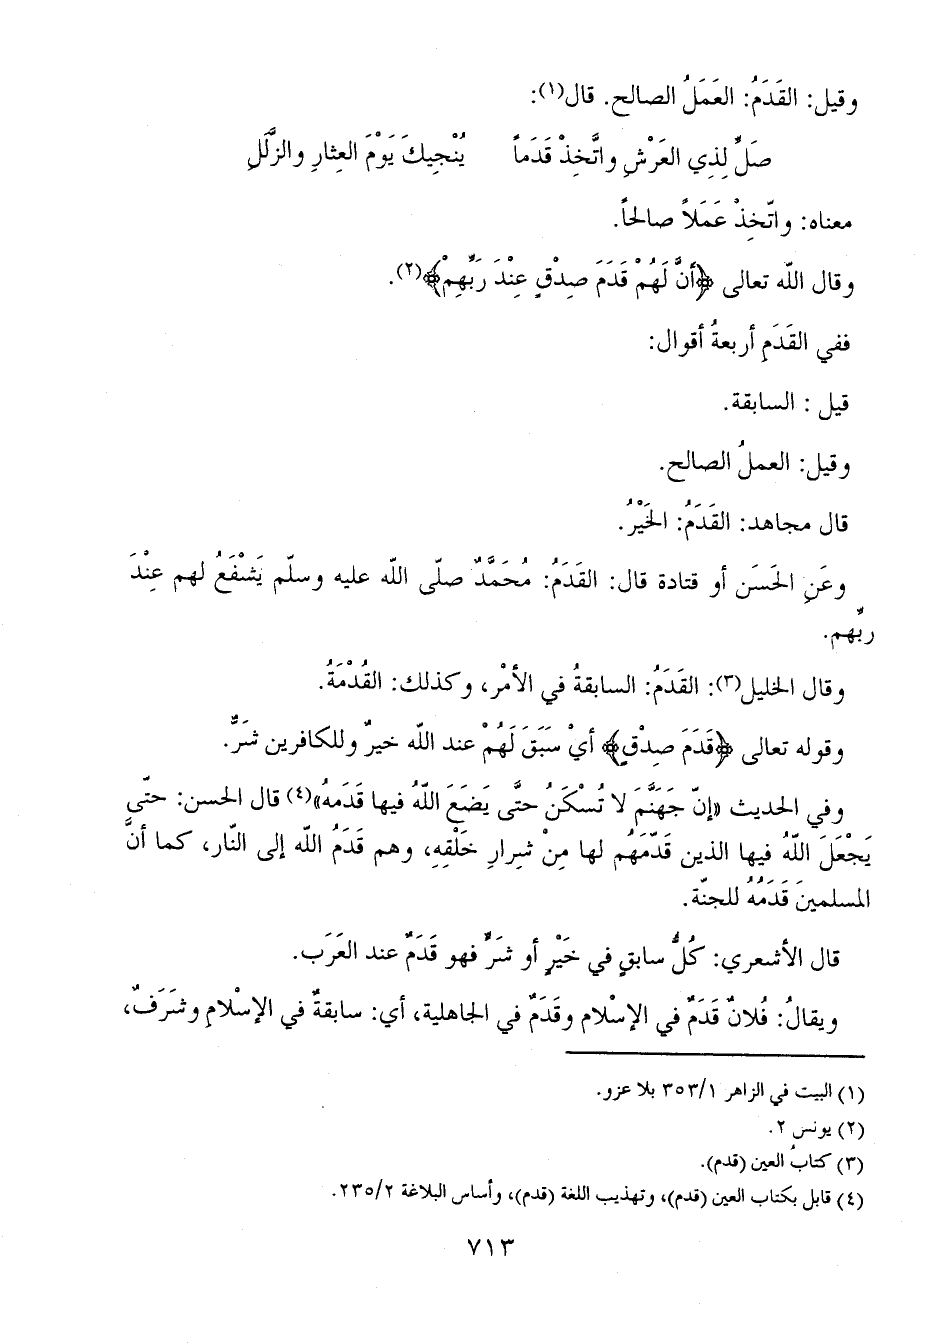 وقيل: القَدَمُ: العَمَلُ الصالح. قال(١):
صَلِّ لِذِي العَرْشِ واتَّخِذْ قَدَماً يُنْجِيكَ يَوْمَ العِثارِ والزَّلَلِ
معناه: واتّخِذْ عَمَلاً صالحاً.
وقال الله تعالى ﴿أَنَّ لَهُمْ قَدَمَ صِدْقٍ عِنْدَ رَبِّهِمْ﴾(٢).
ففي القَدَمِ أربعةُ أقوال:
قيل : السابقة.
وقيل: العملُ الصالح.
قال مجاهد: القَدَمُ: الخَيْرُ.
وعَنِ الحَسَن أو قتادة قال: القَدَمُ: مُحَمَّدٌ صلّى الله عليه وسلّم يَشْفَعُ لهم عِنْدَ
ربِّهم.
وقال الخليل(٣): القَدَمُ: السابقةُ في الأمْر، وكذلك: القُدْمَةُ.
وقوله تعالى ﴿قَدَمَ صِدْقٍ﴾ أيْ سَبَقَ لَهُمْ عند الله خيرٌ وللكافرين شَرٌّ.
وفي الحديث «إنّ جَهَنَّمَ لا تُسْكَنُ حتَّى يَضَعَ اللّهُ فيها قَدَمهُ»(٤) قال الحسن: حتّى
يَجْعَلَ اللّهُ فيها الذين قَدّمَهُم لها مِنْ شِرارِ خَلْقِهِ، وهم قَدَمُ الله إلى النّار، كما أنَّ
المسلمينَ قَدَمُهُ للجنّة.
قال الأشعري: كُلُّ سابقٍ في خَيْرٍ أو شَرٍّ فهو قَدَمٌ عند العَرَب.
ويقالُ: فُلانٌ قَدَمٌ في الإسْلام وقَدَمٌ في الجاهلية، أي: سابقةٌ في الإسْلامِ وشَرَفٌ،
(١) البيت في الزاهر ٣٥٣/١ بلا عزو.
(٢) يونس ٢.
(٣) كتابُ العين (قدم).
(٤) قابل بكتاب العين (قدم)، وتهذيب اللغة (قدم)، وأساس البلاغة ٢٣٥/٢.
٧١٣